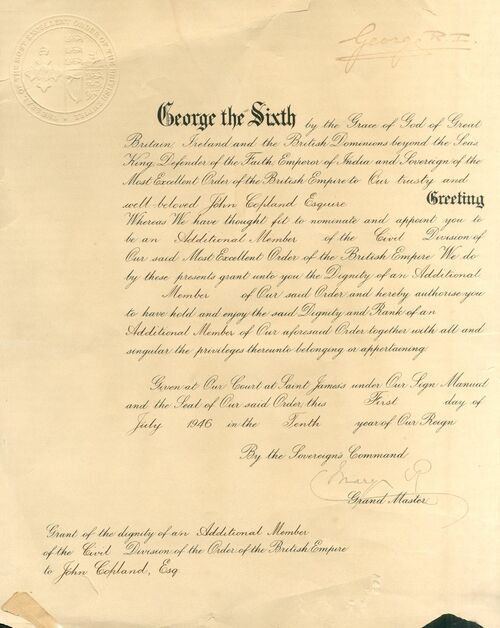 George R.I.
George the Sixth by the Grace of God of Great
Britain, Ireland and the British Dominions beyond the Seas,
King, Defender of the Faith, Emperor of India and Sovereign of the
Most Excellent Order of the British Empire to Our trusty and
well beloved John Copland Esquire Greeting
Whereas We have thought fit to nominate and appoint you to
be an Additional Member of the Civil Division of
Our said Most Excellent Order of the British Empire We do
by these presents grant unto you the Dignity of an Additional
Member of Our said Order and hereby authorise you
to have hold and enjoy the said Dignity and Rank of an
Additional Member of Our aforesaid Order together with all and
singular the privileges thereunto belonging or appertaining.
Given at Our Court at Saint James's under Our Sign Manual
and the Seal of Our said Order, this First day of
July 1946 in the Tenth year of Our Reign
By the Sovereign's Command
Mary R
Grand Master
Grant of the dignity of an Additional Member
of the Civil Division of the Order of the British Empire
to John Copland, Esq